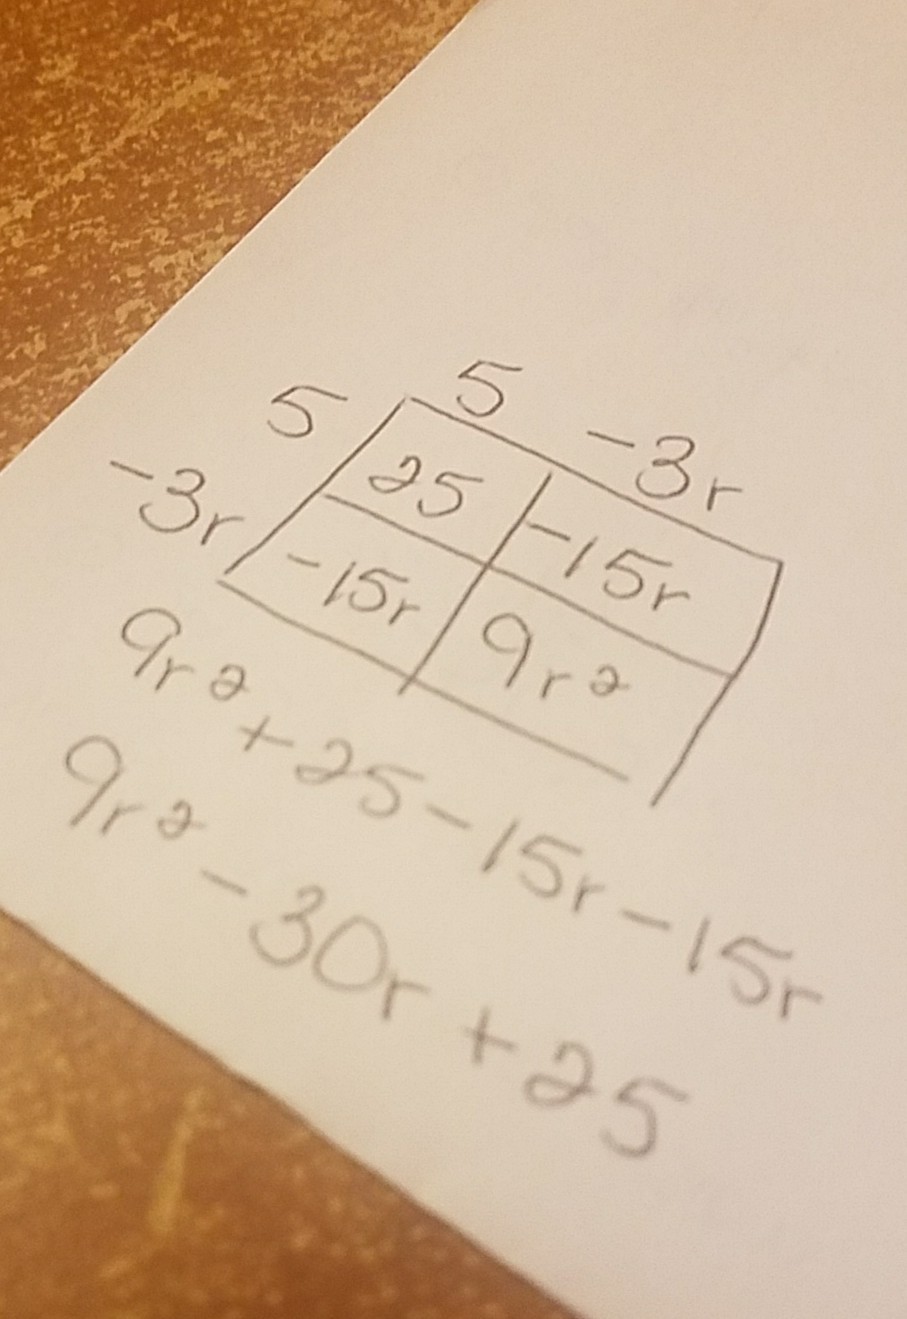 5 -3r
5 25 -15r
-3r -15r 9r²
9r² + 25 - 15r - 15r
9r² - 30r + 25